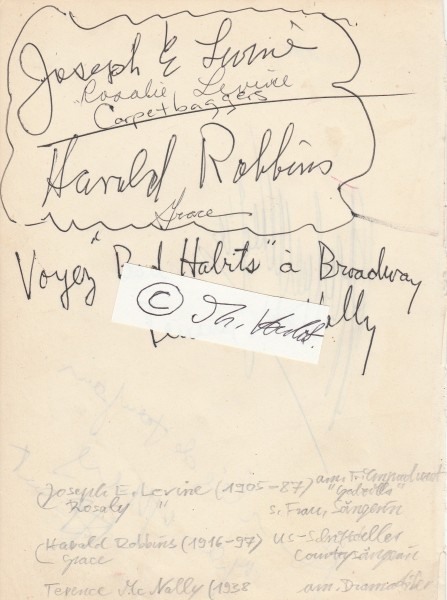 Joseph E Levine
Rosalie Levine
Carpetbaggers
Harold Robbins
Grace
Voyez "Bad Habits" à Broadway
© Th. Vendot.
Nally
Joseph E. Levine (1905-87) am. Filmproduzent
Rosaly " s. Frau, Sängerin
Harald Robbins (1916-97) US-Schriftsteller
Grace Countrysängerin
Terence Mc Nally (1938 am. Dramatiker